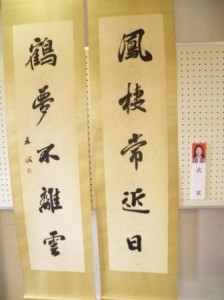 鳳棲常近日
鶴夢不離雲